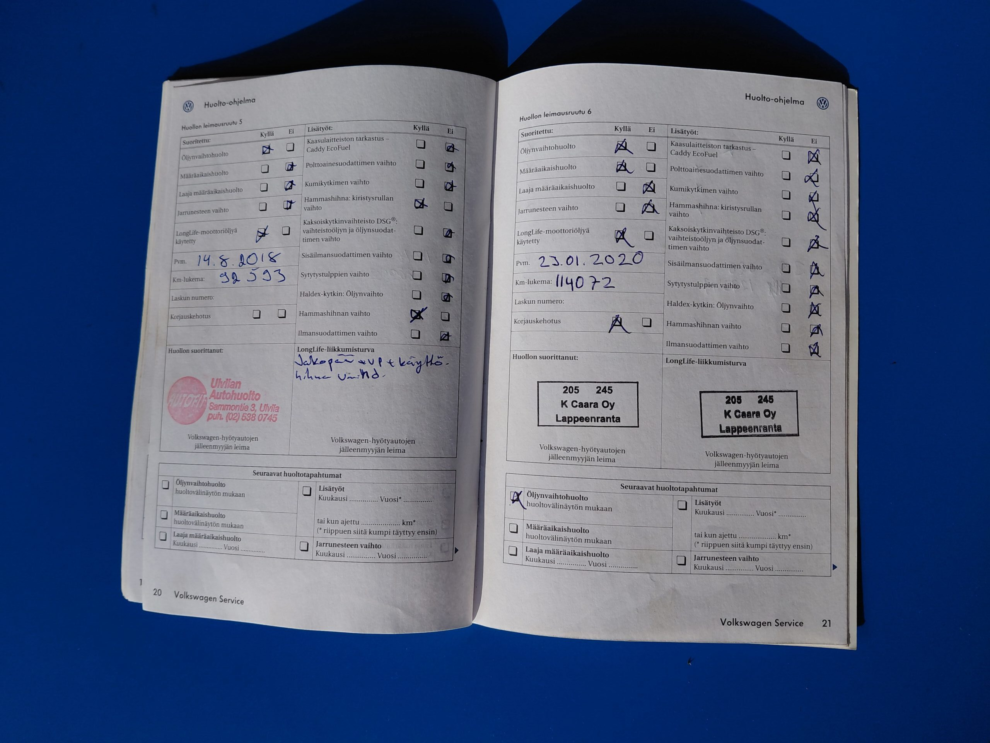 Huolto-ohjelma
Huollon leimausruutu 5
Suoritettu: Kyllä Ei Lisätyöt: Kyllä Ei
Öljynvaihtohuolto
Kaasulaitteiston tarkastus –
Caddy EcoFuel
Määräaikaishuolto
Polttoainesuodattimen vaihto
Laaja määräaikaishuolto
Kumikytkimen vaihto
Jarrunesteen vaihto
Hammashihna: kiristysrullan
vaihto
LongLife-moottoriöljyä
käytetty
Kaksoiskytkinvaihteisto DSG®:
vaihteistoöljyn ja öljynsuodat-
timen vaihto
Pvm. 14.8.2018
Sisäilmansuodattimen vaihto
Km-lukema: 92 593
Sytytystulppien vaihto
Laskun numero
Haldex-kytkin: Öljynvaihto
Korjauskehotus
Hammashihnan vaihto
Ilmansuodattimen vaihto
Huollon suorittanut:
LongLife-liikkumisturva
Jakopää + VP + käyttö-
hihna vaihto
Ulvilan
Autohuolto
Sammontie 3, Ulvila
puh. (02) 538 0745
Volkswagen-hyötyautojen
jälleenmyyjän leima
Volkswagen-hyötyautojen
jälleenmyyjän leima
Seuraavat huoltotapahtumat
Öljynvaihtohuolto
huoltovälinäytön mukaan
Lisätyöt
Kuukausi ............ Vuosi* ............
Määräaikaishuolto
huoltovälinäytön mukaan
tai kun ajettu .................. km*
(* riippuen siitä kumpi täyttyy ensin)
Laaja määräaikaishuolto
Kuukausi ............ Vuosi ............
Jarrunesteen vaihto
Kuukausi ............ Vuosi ............
20 Volkswagen Service
Huolto-ohjelma
Huollon leimausruutu 6
Suoritettu: Kyllä Ei Lisätyöt: Kyllä Ei
Öljynvaihtohuolto
Kaasulaitteiston tarkastus –
Caddy EcoFuel
Määräaikaishuolto
Polttoainesuodattimen vaihto
Laaja määräaikaishuolto
Kumikytkimen vaihto
Jarrunesteen vaihto
Hammashihna: kiristysrullan
vaihto
LongLife-moottoriöljyä
käytetty
Kaksoiskytkinvaihteisto DSG®:
vaihteistoöljyn ja öljynsuodat-
timen vaihto
Pvm. 23.01.2020
Sisäilmansuodattimen vaihto
Km-lukema: 114072
Sytytystulppien vaihto
Laskun numero:
Haldex-kytkin: Öljynvaihto
Korjauskehotus
Hammashihnan vaihto
Ilmansuodattimen vaihto
Huollon suorittanut:
LongLife-liikkumisturva
205 245
K Caara Oy
Lappeenranta
205 245
K Caara Oy
Lappeenranta
Volkswagen-hyötyautojen
jälleenmyyjän leima
Volkswagen-hyötyautojen
jälleenmyyjän leima
Seuraavat huoltotapahtumat
Öljynvaihtohuolto
huoltovälinäytön mukaan
Lisätyöt
Kuukausi ............ Vuosi* ............
Määräaikaishuolto
huoltovälinäytön mukaan
tai kun ajettu .................. km*
(* riippuen siitä kumpi täyttyy ensin)
Laaja määräaikaishuolto
Kuukausi ............ Vuosi ............
Jarrunesteen vaihto
Kuukausi ............ Vuosi ............
Volkswagen Service 21